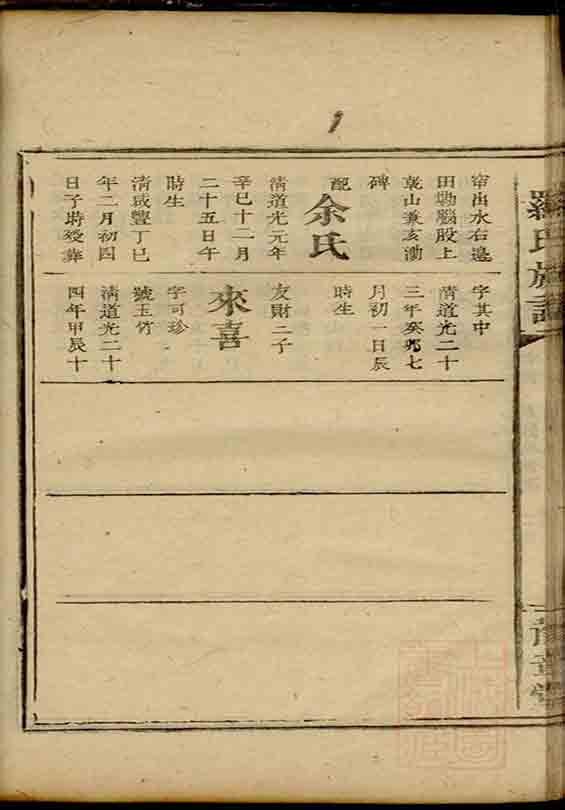 羅氏族譜
窄出水右邊
田塝腦股上
乾山兼亥泐
碑
配
余氏
清道光元年
辛巳十二月
二十五日午
時生
清咸豐丁巳
年二月初四
日子時歿葬
字其中
清道光二十
三年癸卯七
月初一日辰
時生
友財二子
來喜
字可珍
號玉竹
清道光二十
四年甲辰十